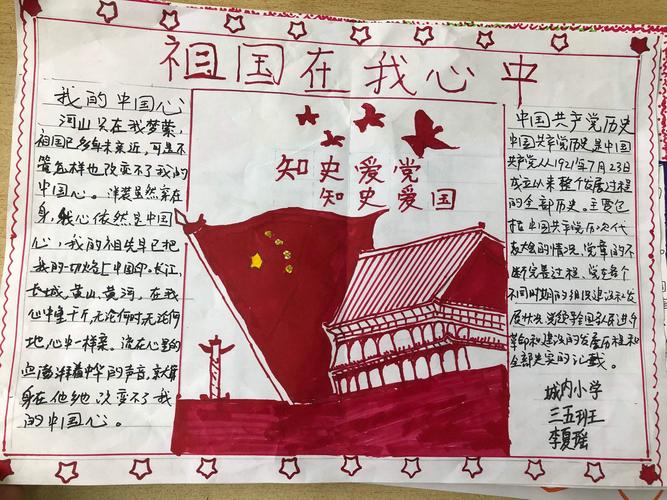 祖国在我心中
我的中国心
河山只在我梦萦,
祖国已多年未亲近,可是不
管怎样也改变不了我的
中国心。洋装虽然穿在
身,我心依然是中国
心,我的祖先早已把
我的一切烙上中国印。长江,
长城,黄山,黄河,在我
心中重千斤,无论何时,无论何
地,心中一样亲。流在心里的
血澎湃着中华的声音,就算
身在他乡也改变不了我
的中国心。
知史爱党
知史爱国
中国共产党历史
中国共产党历史是中国
共产党从1921年7月23日
成立以来整个发展过程
的全部历史。主要包
括中国共产党历次代
表大会的情况,党章的不
断完善过程、党在每个
不同时期的组织建设和发
展状况,党领导全国人民进行
革命和建设的发展历程和
全部史实的记载。
城内小学
三五班王
李夏瑶